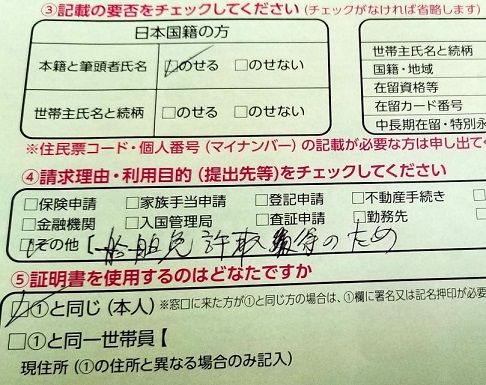 ③記載の要否をチェックしてください(チェックがなければ省略します)
日本国籍の方
本籍と筆頭者氏名 □のせる □のせない
世帯主氏名と続柄 □のせる □のせない
世帯主氏名と続柄
国籍・地域
在留資格等
在留カード番号
中長期在留・特別永
※住民票コード・個人番号(マイナンバー)の記載が必要な方は申し出て
④請求理由・利用目的(提出先等)をチェックしてください
□保険申請 □家族手当申請 □登記申請 □不動産手続き
□金融機関 □入国管理局 □査証申請 □勤務先
□その他【船舶免許取得のため
⑤証明書を使用するのはどなたですか
□①と同じ(本人)※窓口に来た方が①と同じ方の場合は、①欄に署名又は記名押印が必要
□①と同一世帯員【
現住所(①の住所と異なる場合のみ記入)